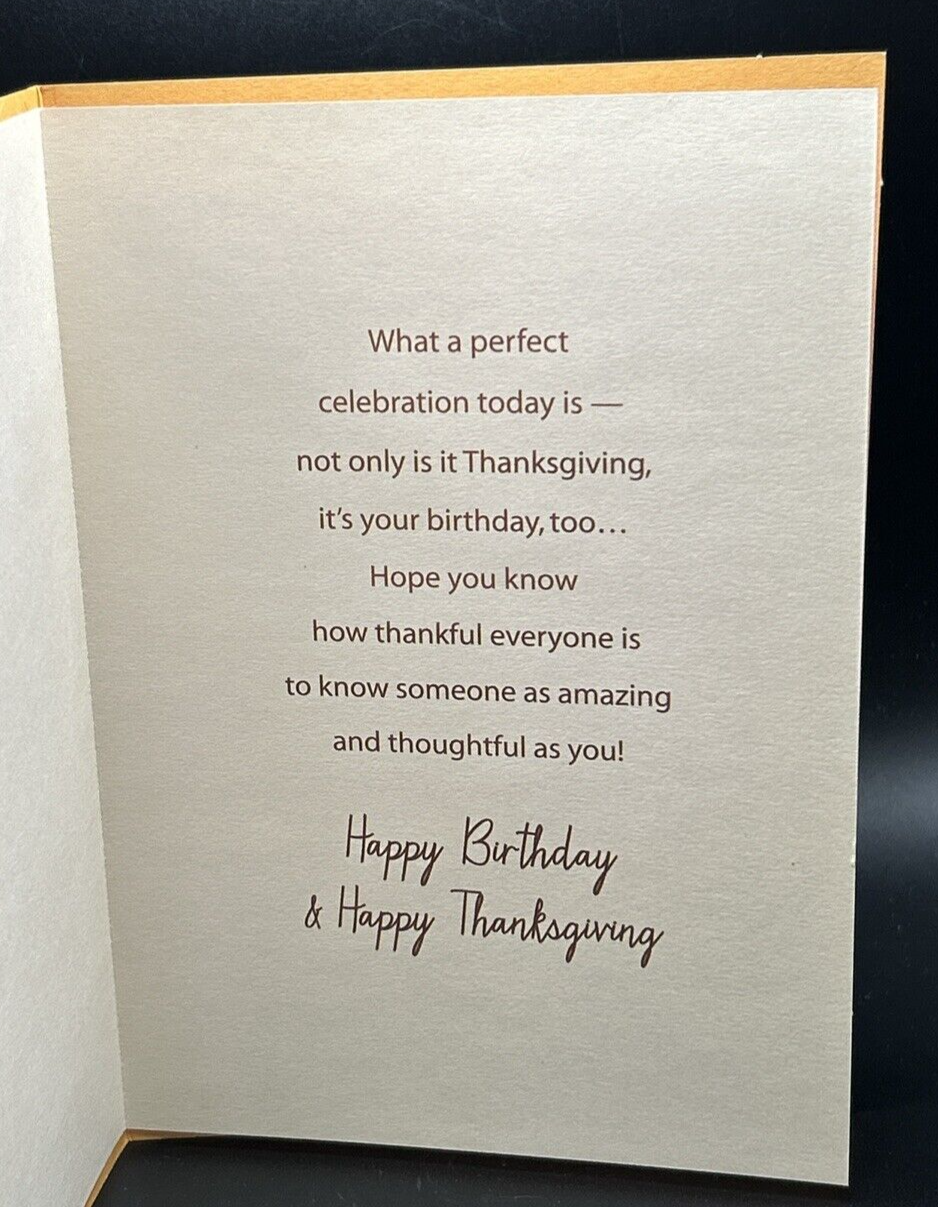 What a perfect
celebration today is —
not only is it Thanksgiving,
it's your birthday, too...
Hope you know
how thankful everyone is
to know someone as amazing
and thoughtful as you!
Happy Birthday
& Happy Thanksgiving